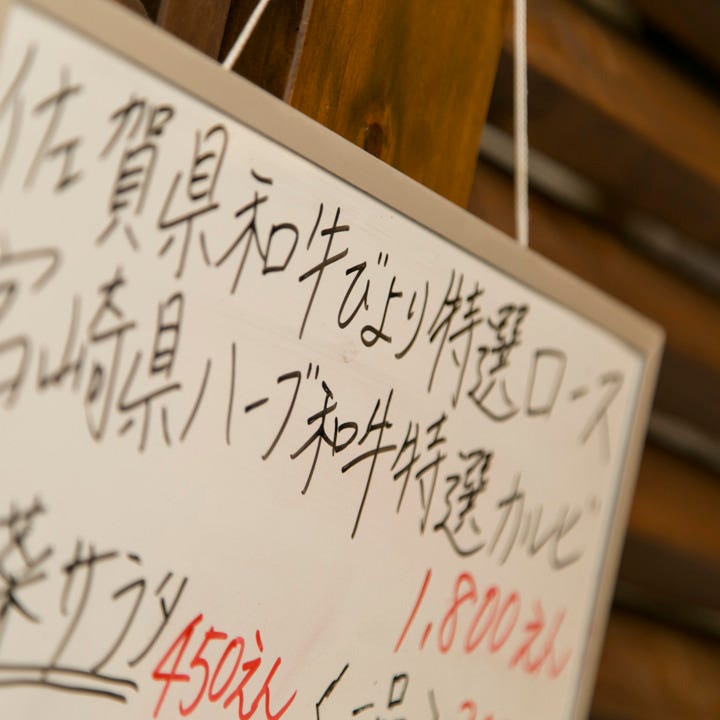 佐賀県和牛びより特選ロース
宮崎県ハーブ和牛特選カルビ
1,800えん
菜サラダ
450えん
〈一品〉